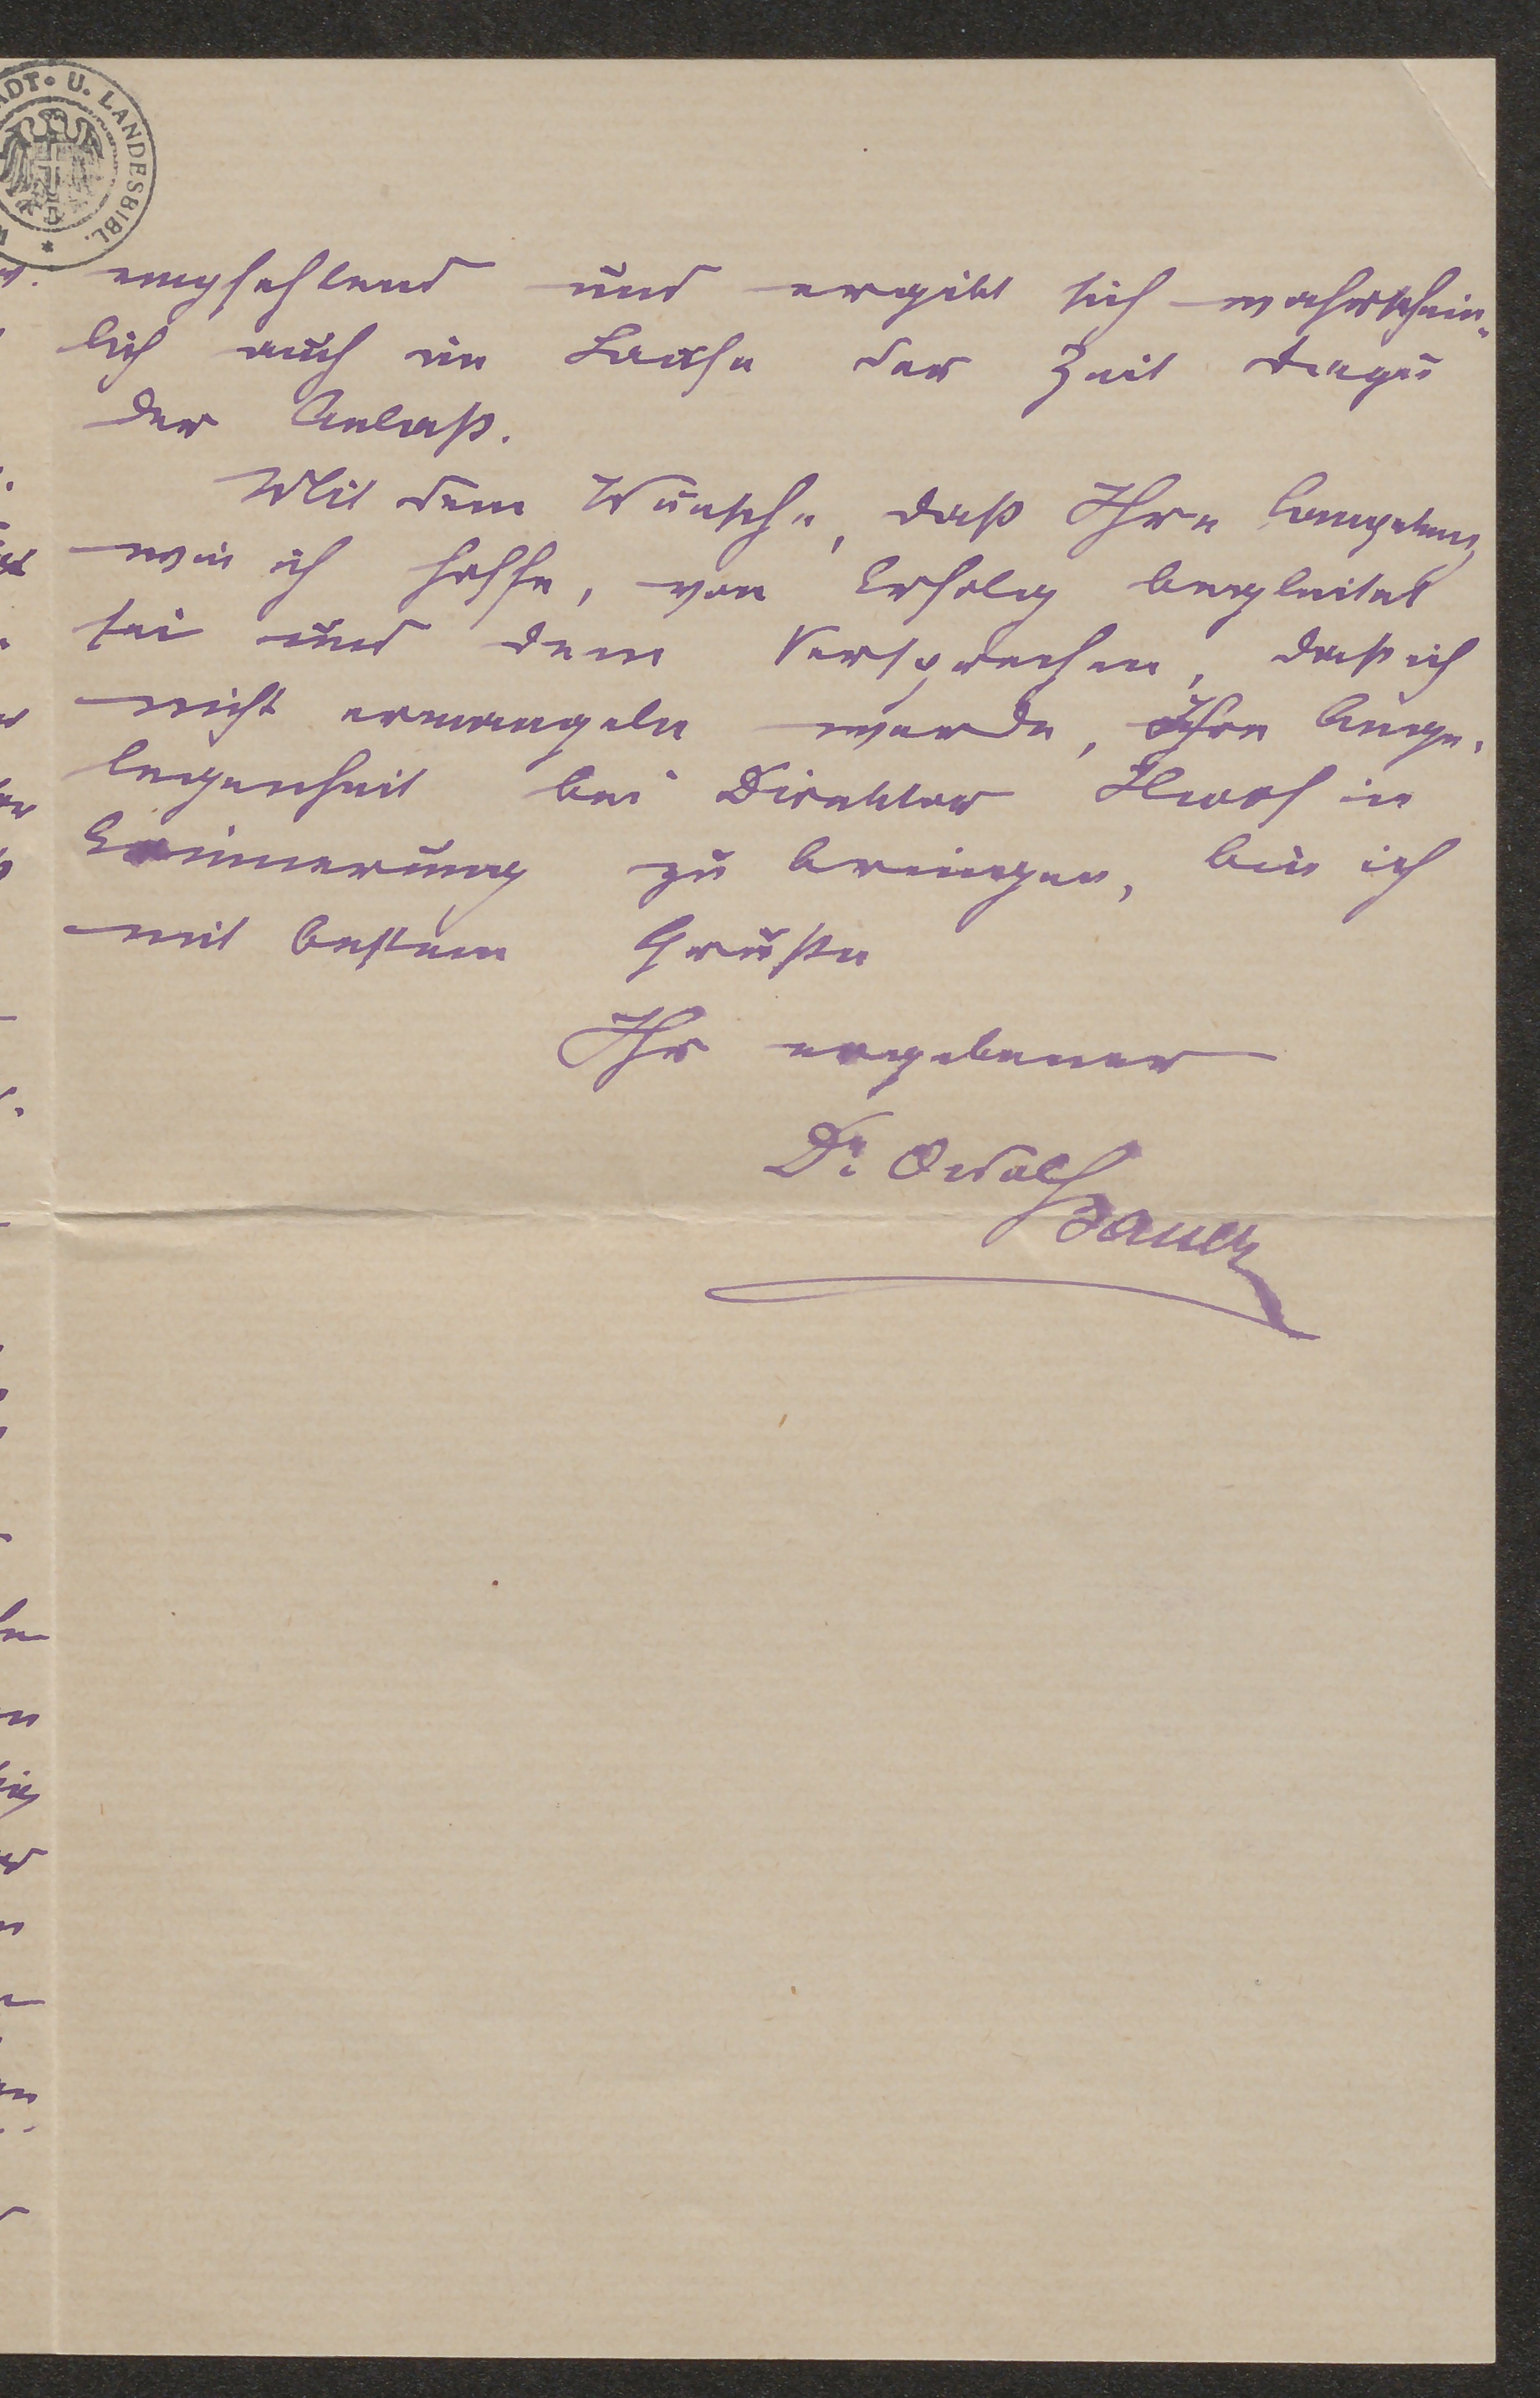 ADT. U. LANDESBIBL. *
empfehlend und ergibt sich wahrschein-
lich auch im Laufe der Zeit dazu
der Anlaß.
Mit dem Wunsche, daß Ihre Competenz
wie ich hoffe, von Erfolg begleitet
sei und dem Versprechen, daß ich
nicht ermangeln werde, Ihre Ange-
legenheit bei Direktor in
Erinnerung zu bringen, bin ich
mit bestem Gruße
Ihr ergebener
Dr
Bauer